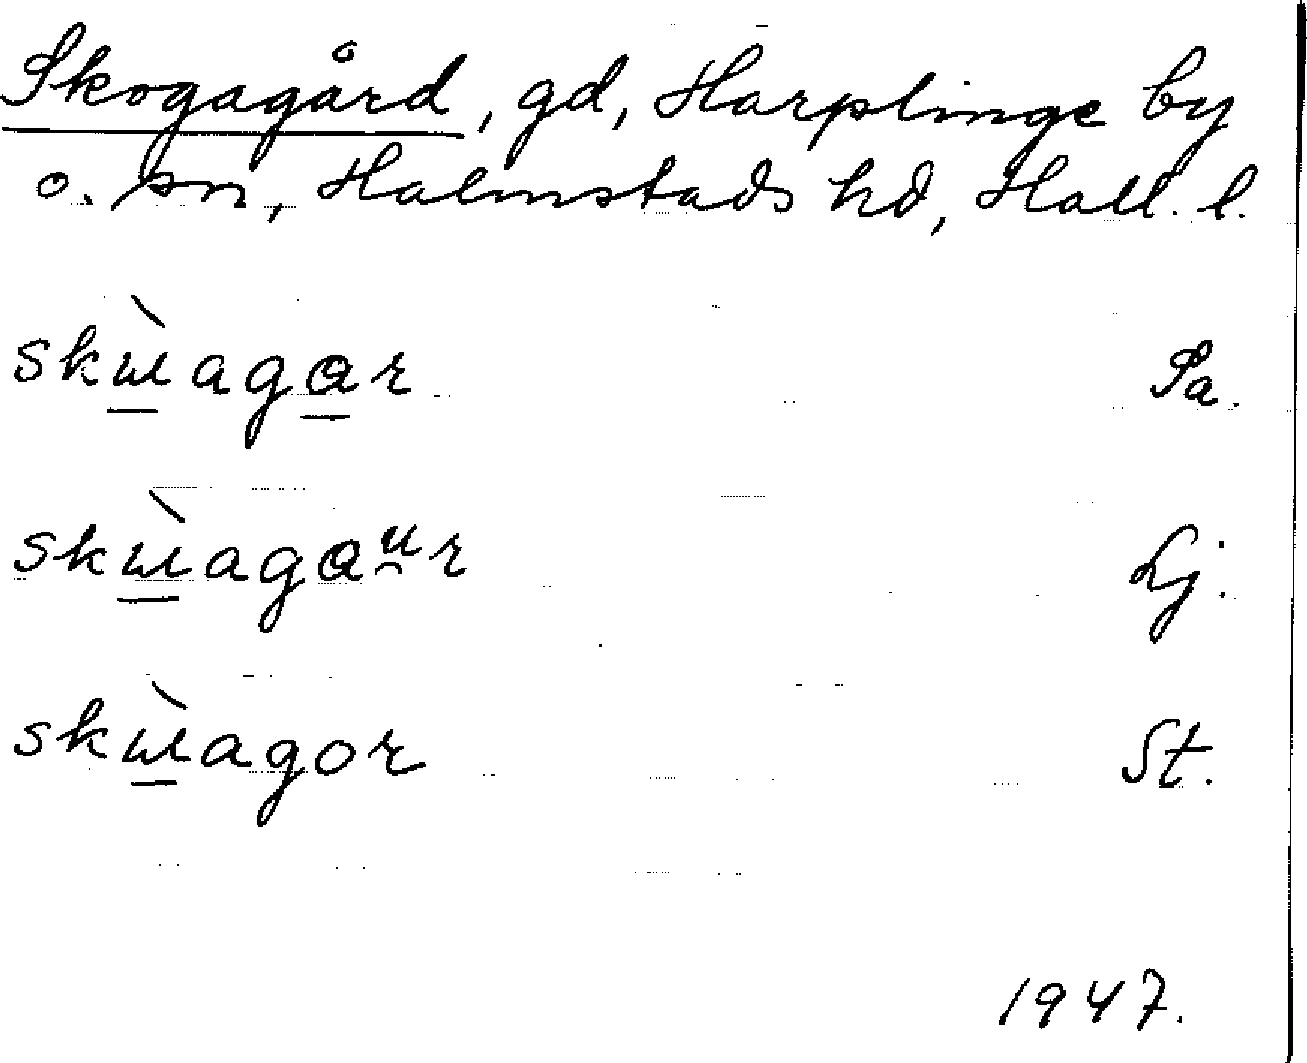 Skogagård, gd, Harplinge by
o. sn, Halmstads hd, Hall. l.
skɯ̱̀aga̱r Sa.
skɯ̱̀agaᵘ̯r Lj.
skɯ̱̀agor St.
1947.